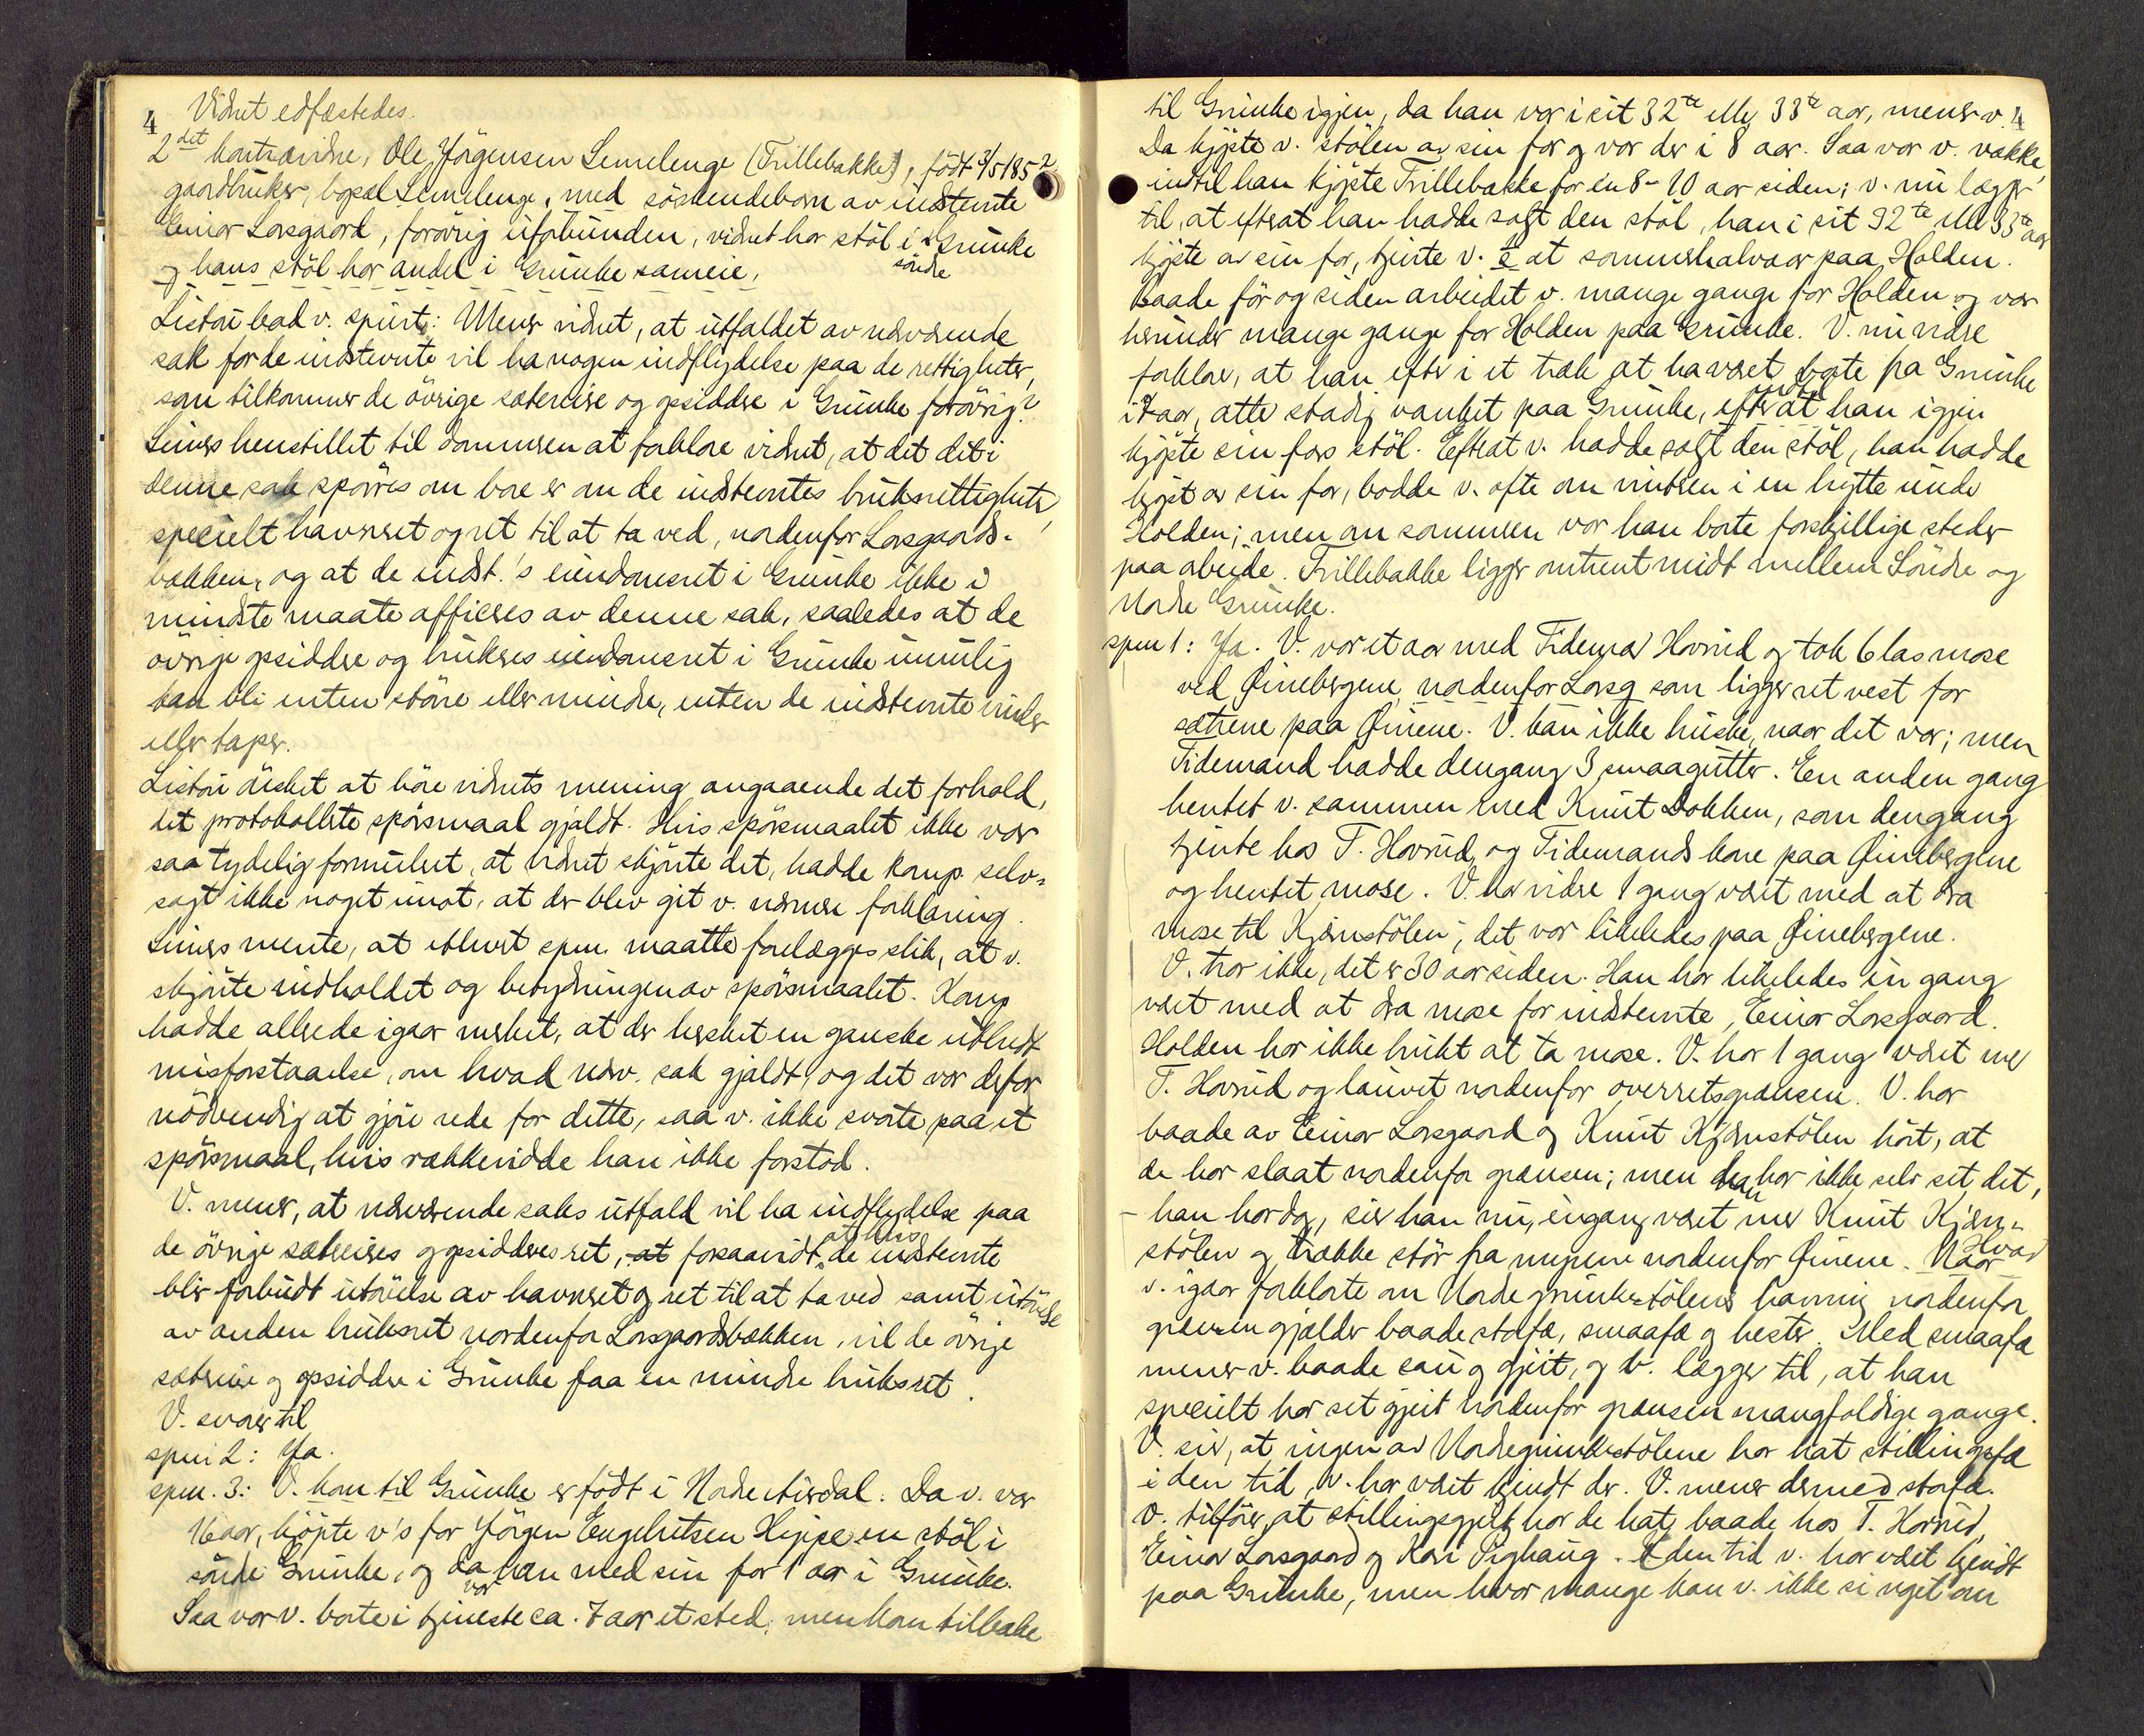 4
Vidnet edfæstedes.
2det kontravidne, Ole Jörgensen Semelenge (Trillebakke), födt 3/5 1852
gaardbruker, bopæl Semelenge, med söskendebarn av indstevnte
Einar Lorsgaard, forövrig uforbunden, vidnet har stöl i söndre Grunke
og hans stöl har andel i Grunke sameie.
Liston bad v. spurt: Mener vidnet, at utfaldet av nærværende
sak for de indstevnte vil ha nogen indflydelse paa de rettigheter,
som tilkommer de övrige sætereiere og opsiddere i Grunke forövrig?
henstillet til dommeren at forklare vidnet, at det det i
denne sak spörres om bare er om de indstevntes bruksrettigheter,
specielt havneret og ret til at ta ved, nordenfor Lorsgaards-
bækken, og at de indst.'s eiendomsret i Grunke ikke i
mindste maate afficeres av denne sak, saaledes at de
övrige opsiddere og brukeres eiendomsret i Grunke umulig
kan bli enten större eller mindre, enten de indstevnte vinder
eller taper.
Liston ösket at höre vidnets mening angaaende det forhold,
det protokollerte spörsmaal gjaldt. Hvis spörsmaalet ikke var
saa tydelig formulert, at vidnet skjönte det, hadde komp. selv-
sagt ikke noget imot, at der blev git v. nærmere forklaring.
mente, at ethvert spm. maatte forelægges slik, at v.
skjönte indholdet og betydningen av spörsmaalet. Komp
hadde allerede igaar merket, at der hersket en ganske utbredt
misforstaaelse, om hvad nærv. sak gjaldt, og det var derfor
nödvendig at gjöre rede for dette, saa v. ikke svarte paa et
spörsmaal, hvis rækkevidde han ikke forstod.
V. mener, at nærværende saks utfald vil ha indflydelse paa
de övrige sætereieres og opsidderes ret, at forsaavidt, at hvis de indstevnte
blir forbudt utövelse av havneret og ret til at ta ved samt utövelse
av anden bruksret nordenfor Lorsgaardsbækken, vil de övrige
sætereiere og opsiddere i Grunke faa en mindre bruksret.
V. svarer til
spm 2: Ja.
spm. 3: V. kom til Grunke er födt i Nordre Aurdal. Da v. var
16 aar, kjöpte v's far Jörgen Engebretsen Hippe en stöl i
söndre Grunke, og da var han med sin far 1 aar i Grunke.
Saa var v. borte i tjeneste ca. 7 aar et sted, men kom tilbake
til Grunke igjen, da han var i sit 32te eller 33te aar, mener v. 4
Da kjöpte v. stölen av sin far og var der i 8 aar. Saa var v. vække,
indtil han kjöpte Trillebakke for en 8-10 aar siden; v. nu lægger
til, at efterat han hadde solgt den stöl, han i sit 32te eller 33te aar
kjöpte av sin far, tjente v. et sommerhalvaar paa Holden.
Baade för og siden arbeidet v. mange gange for Holden og var
herunder mange gange for Holden paa Grunke. V. nu vidre
forklarer, at han efter i et træk at ha været borte fra Grunke
i 7 aar, atter stadig vanket paa Grunke, efterat han igjen
kjöpte sin fars stöl. Efterat v. hadde solgt den stöl, han hadde
kjöpt av sin far, bodde v. ofte om vinteren i en hytte under
Holden; men om sommeren var han borte forskjellige steder
paa arbeide. Trillebakke ligger omtrent midt mellem Söndre og
Nordre Grunke.
spm 1: Ja. V. var et aar med Tidemand Hovrud og tok 6 las mose
ved Öinebergene nordenfor Lorsg som ligger ret vest for
sætrene paa Öinene. V. kan ikke huske, naar det var; men
Tidemand hadde dengang 3 smaagutter. En anden gang
hentet v. sammen med Knut Dokken, som dengang
tjente hos T. Hovrud, og Tidemands kone paa Öinebergene
og hentet mose. V. har vidre 1 gang været med at dra
mose til Kjærnstölen; det var likeledes paa Öinebergene.
V. tror ikke, det er 30 aar siden. Han har likeledes en gang
været med at dra mose for indstevnte, Einar Lorsgaard.
Holden har ikke brukt at ta mose. V. har 1 gang været med
T. Hovrud og lauvet nordenfor overretsgrænsen. V. har
baade av Einar Lorsgaard og Knut Kjærnstölen hört, at
de har slaat nordenfor grænsen; men han har ikke selv set det,
- han har dog, sier han nu, engang været med Knut Kjærn-
stölen og trække stör fra myrene nordenfor Öinene. Hvad
v. igaar forklarte om Nordre grunkestölens havning nordenfor
grænsen gjælder baade storfæ, smaafæ og hester. Med smaafæ
mener v. baade sau og gjeit, og v. lægger til, at han
specielt har set gjeit nordenfor grænsen mangfoldige gange.
V. sier, at ingen av Nordregrunkestölene har hat stillingsfæ
i den tid, v. har været kjendt der. V. mener dermed storfæ.
V. tilföier, at stillingsgjeit har de hat, baade hos T. Hovrud,
Einar Lorsgaard og Kari Pighaug. I den tid v. har været kjendt
paa Grunke, men hvor mange kan v. ikke si noget om